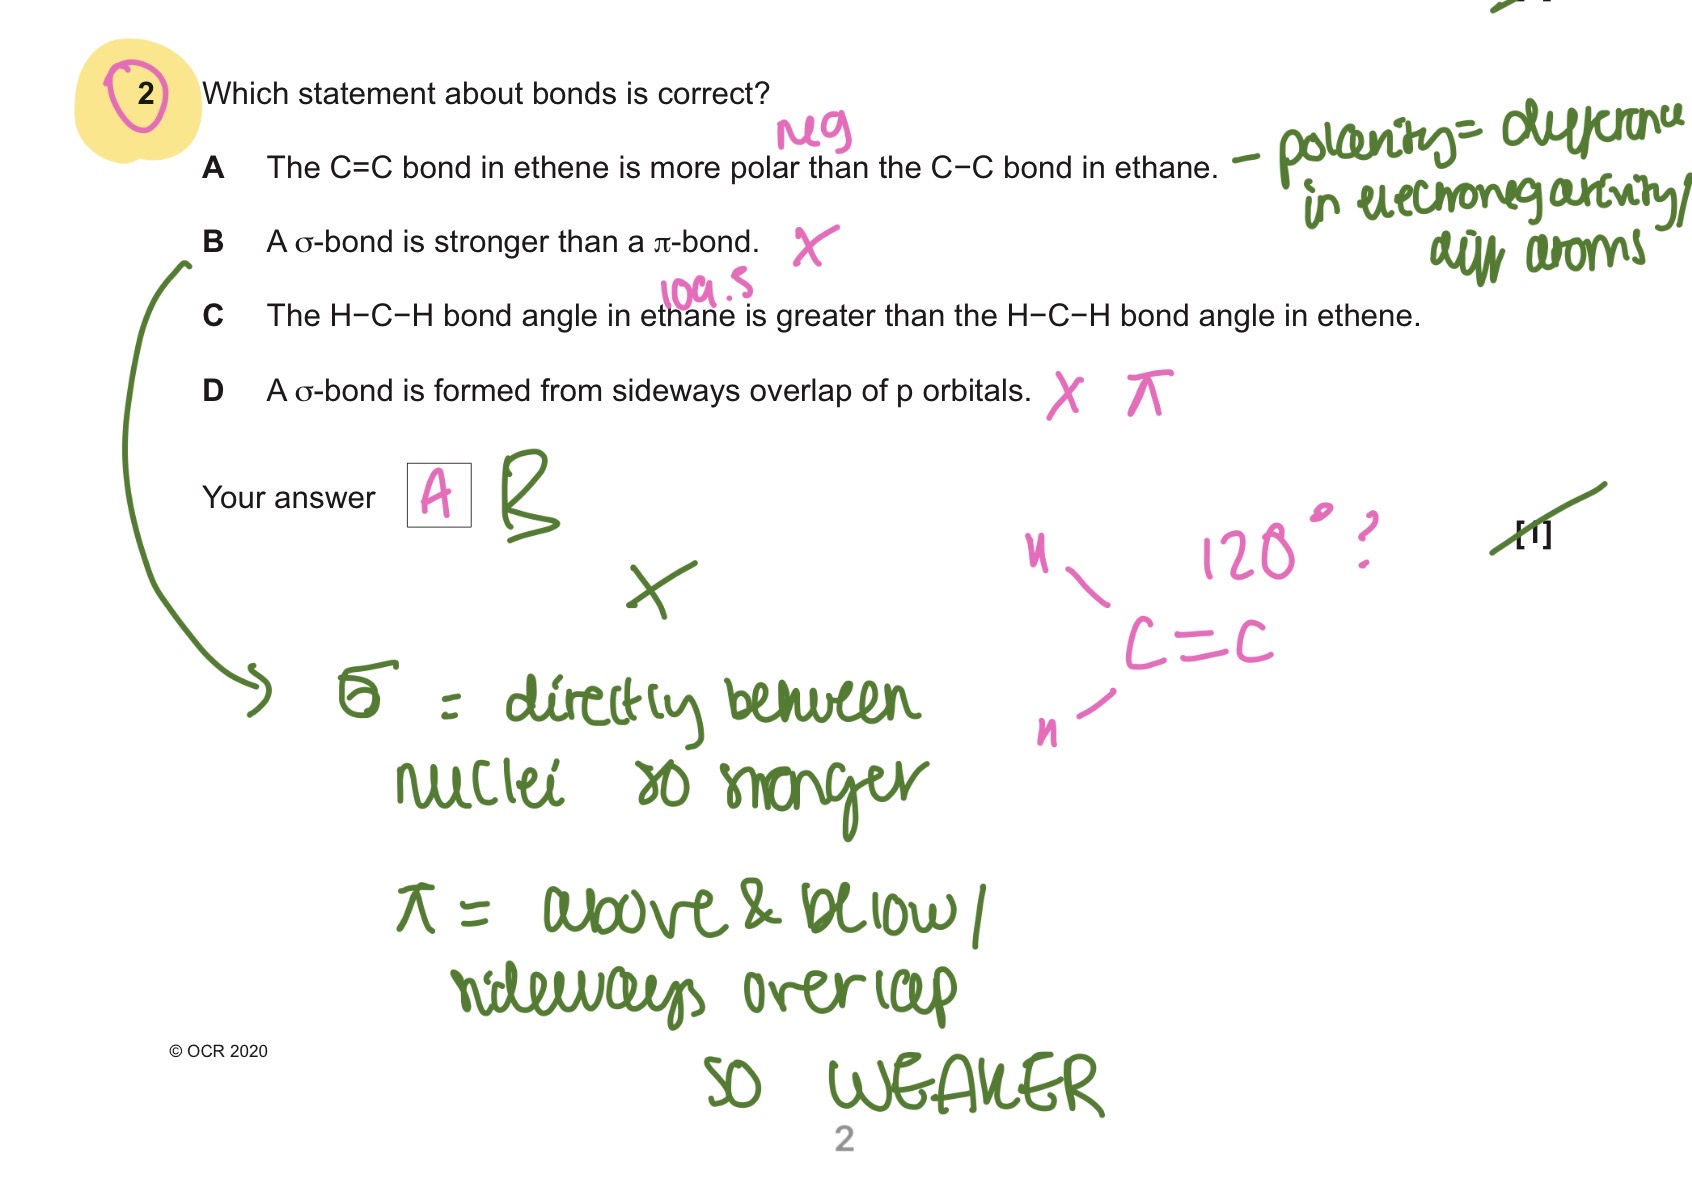 2 Which statement about bonds is correct?
neg
A The C=C bond in ethene is more polar than the C−C bond in ethane.
– polarity = difference
in electronegativity/
diff atoms
B A σ-bond is stronger than a π-bond. X
109.5
C The H−C−H bond angle in ethane is greater than the H−C−H bond angle in ethene.
D A σ-bond is formed from sideways overlap of p orbitals. X π
Your answer A B
[1]
120° ?
H
C=C
H
X
σ = directly between
nuclei so stronger
π = above & below/
sideways overlap
so WEAKER
© OCR 2020
2